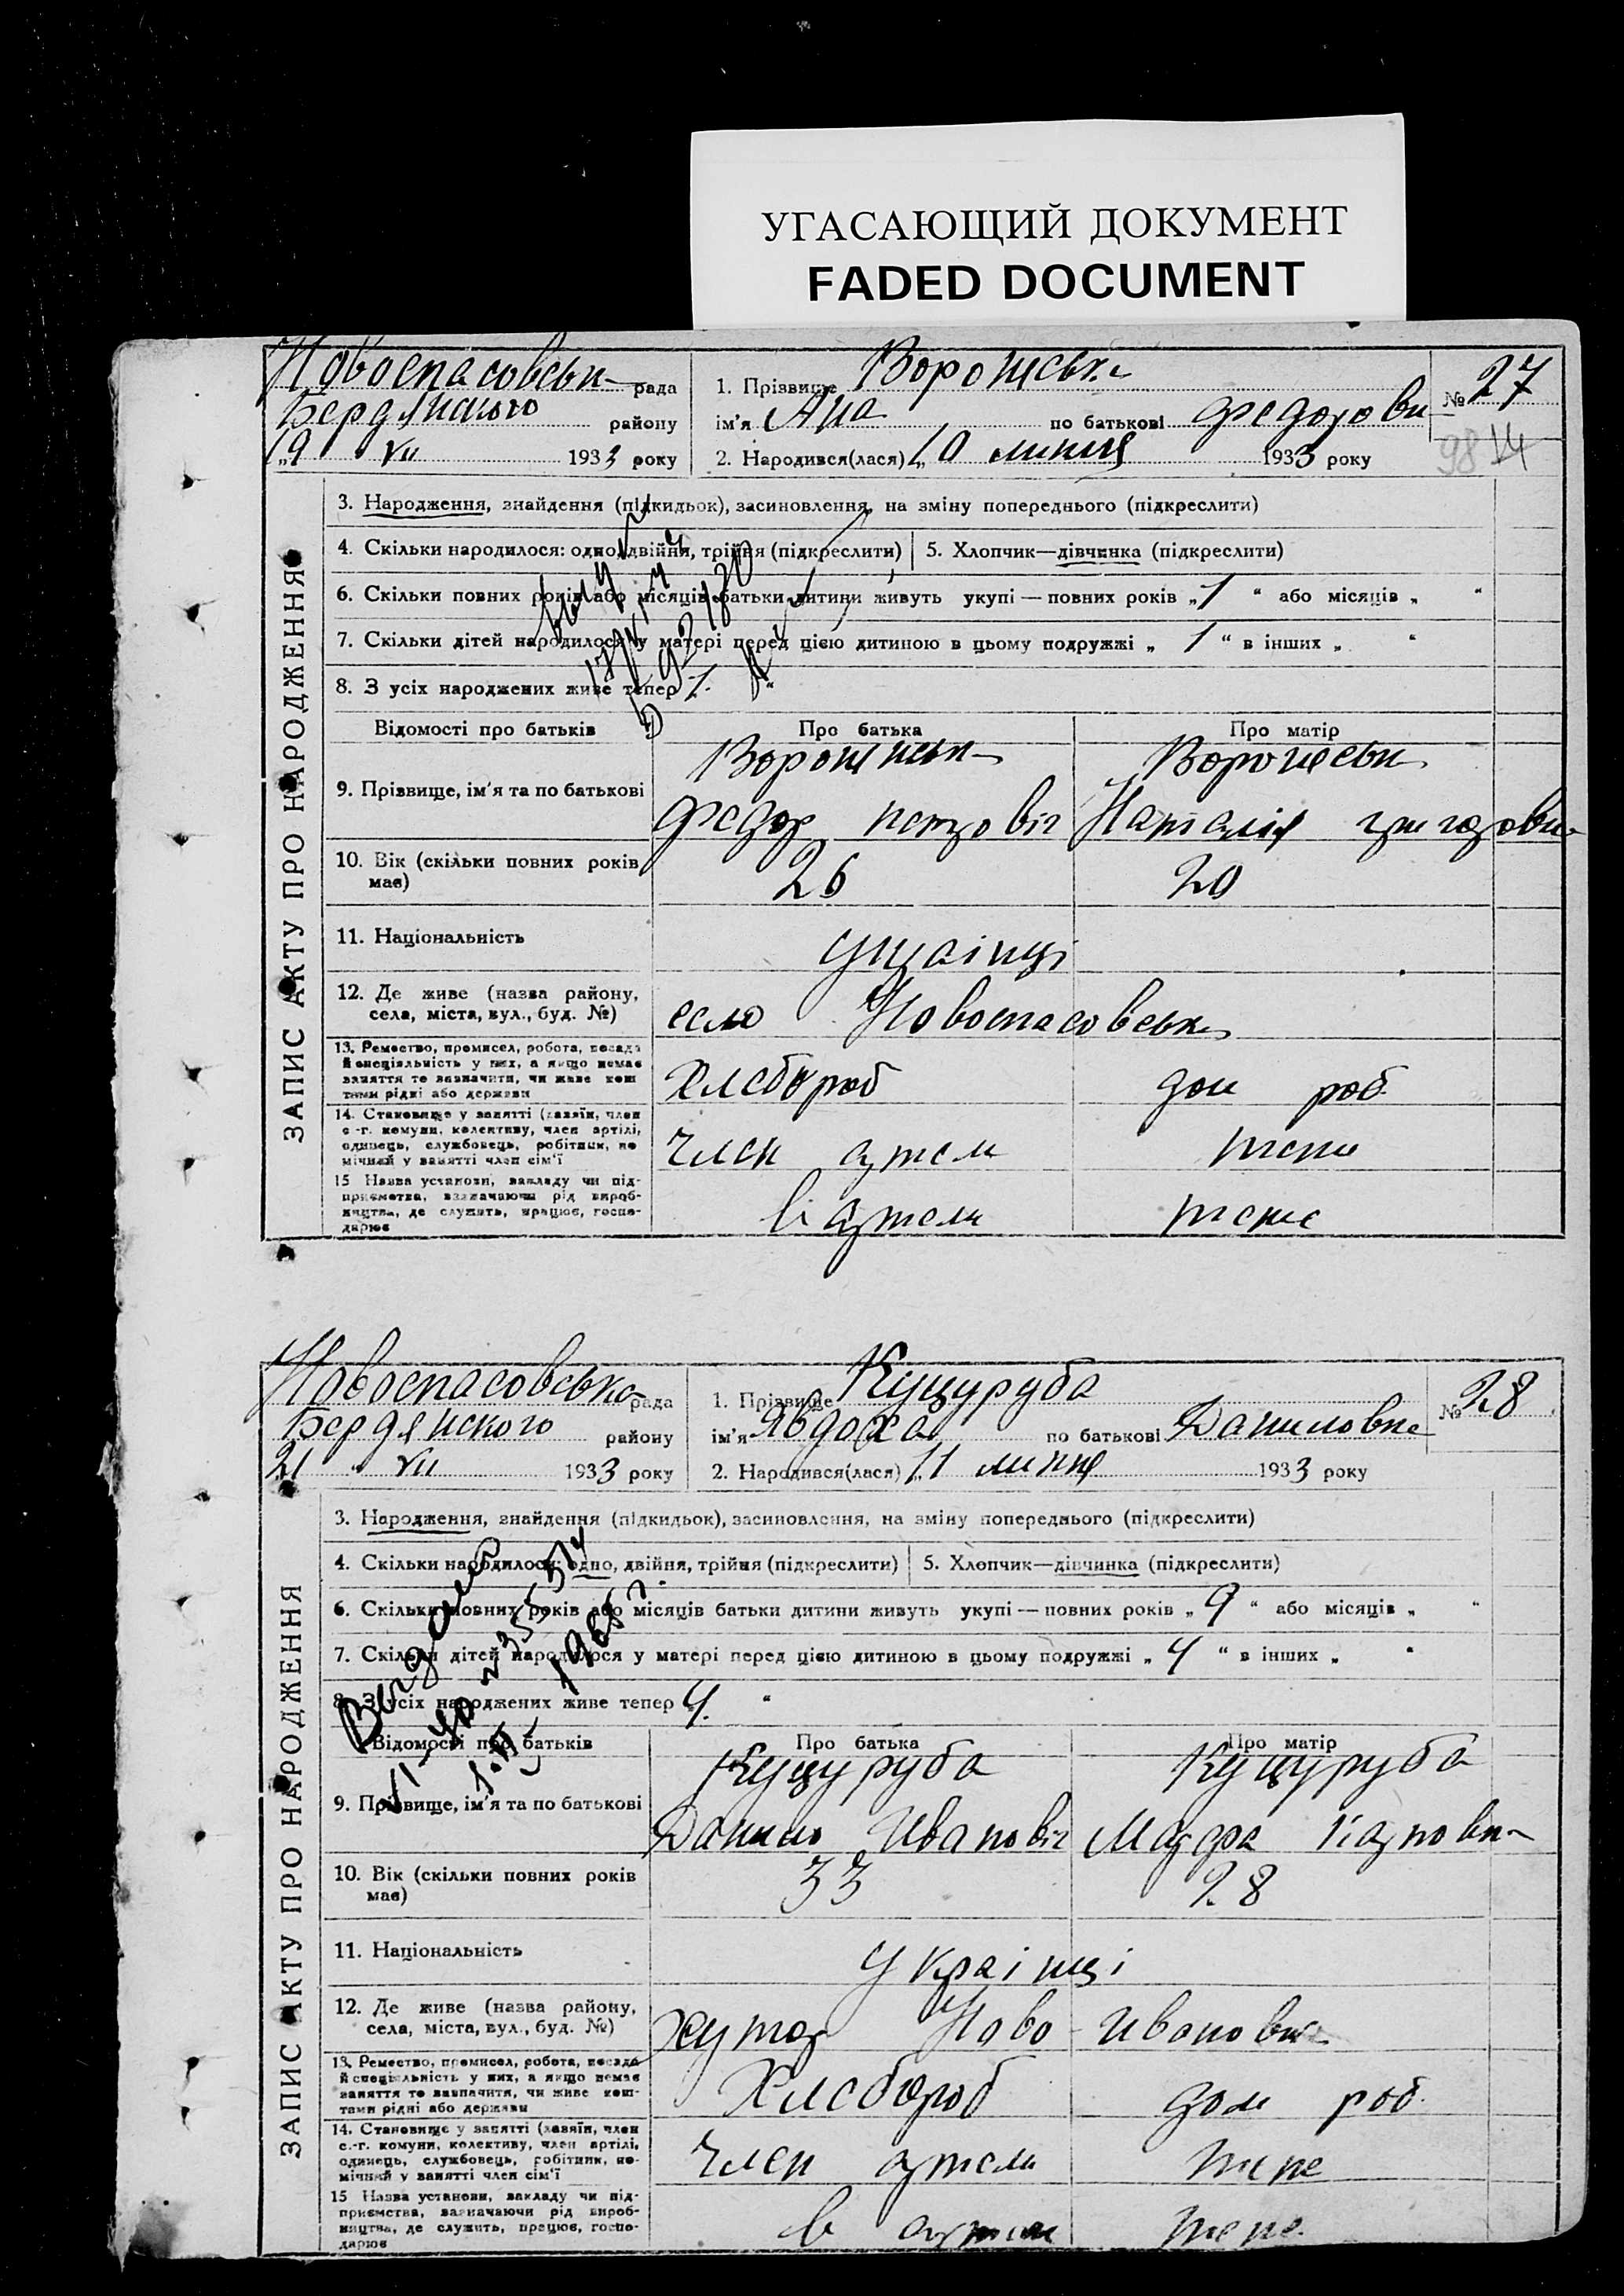 УГАСАЮЩИЙ ДОКУМЕНТ
FADED DOCUMENT
Новоспасовськ рада
Бердянського району
„19 VII 1933 року
1. Прізвище
ім'я Ана по батькові Федоровн
2. Народився(лася) „10 липня 1933 року
№ 27
98 14
ЗАПИС АКТУ ПРО НАРОДЖЕННЯ
3. Народження, знайдення (підкидьок), засиновлення, на зміну попереднього (підкреслити)
4. Скільки народилося: одно, двійня, трійня (підкреслити)
5. Хлопчик—дівчинка (підкреслити)
6. Скільки повних років або місяців батьки дитини живуть укупі — повних років „ 1 “ або місяців „ “
7. Скільки дітей народилося у матері перед цією дитиною в цьому подружжі „ 1 “ в інших „ “
8. З усіх народжених живе тепер 1. “
Відомості про батьків
Про батька
Про матір
9. Прізвище, ім'я та по батькові
Федор петровіч
Наталія григоровн
10. Вік (скільки повних років
має)
26
20
11. Національність
12. Де живе (назва району,
села, міста, вул., буд. №)
село Новоспасовськ
13. Ремество, промисел, робота, посада
й спеціяльність у них, а якщо немає
заняття то зазначити, чи живе кош-
тами рідні або держави
Хлебороб
дом роб.
14. Становище у занятті (хазяїн, член
с.-г. комуни, колективу, член артілі,
одинець, службовець, робітник, по-
мічний у занятті член сім'ї
член артели
тепе
15 Назва установи, закладу чи під-
приємства, зазначаючи рід вироб-
ництва, де служить, працює, госпо-
дарює
в артели
Новоспасовська рада
Бердянского району
21 „ VII 1933 року
1. Прізвище Куцуруба
ім'я Явдоха по батькові Даниловна
2. Народився(лася) „11 липня 1933 року
№ 28
ЗАПИС АКТУ ПРО НАРОДЖЕННЯ
3. Народження, знайдення (підкидьок), засиновлення, на зміну попереднього (підкреслити)
4. Скільки народилося: одно, двійня, трійня (підкреслити)
5. Хлопчик—дівчинка (підкреслити)
6. Скільки повних років або місяців батьки дитини живуть укупі — повних років „ 9 “ або місяців „ “
7. Скільки дітей народилося у матері перед цією дитиною в цьому подружжі „ 4 “ в інших „ “
8. З усіх народжених живе тепер 4. “
Відомості про батьків
Про батька
Про матір
9. Прізвище, ім'я та по батькові
Куцуруба
Данило Ивановіч
Куцуруба
Марфа Карповн
10. Вік (скільки повних років
має)
33
28
11. Національність
Українці
12. Де живе (назва району,
села, міста, вул., буд. №)
хутор Ново-Ивановка
13. Ремество, промисел, робота, посада
й спеціяльність у них, а якщо немає
заняття то зазначити, чи живе кош-
тами рідні або держави
Хлебороб
дом роб.
14. Становище у занятті (хазяїн, член
с.-г. комуни, колективу, член артілі,
одинець, службовець, робітник, по-
мічний у занятті член сім'ї
член артели
15 Назва установи, закладу чи під-
приємства, зазначаючи рід вироб-
ництва, де служить, працює, госпо-
дарює
в артели